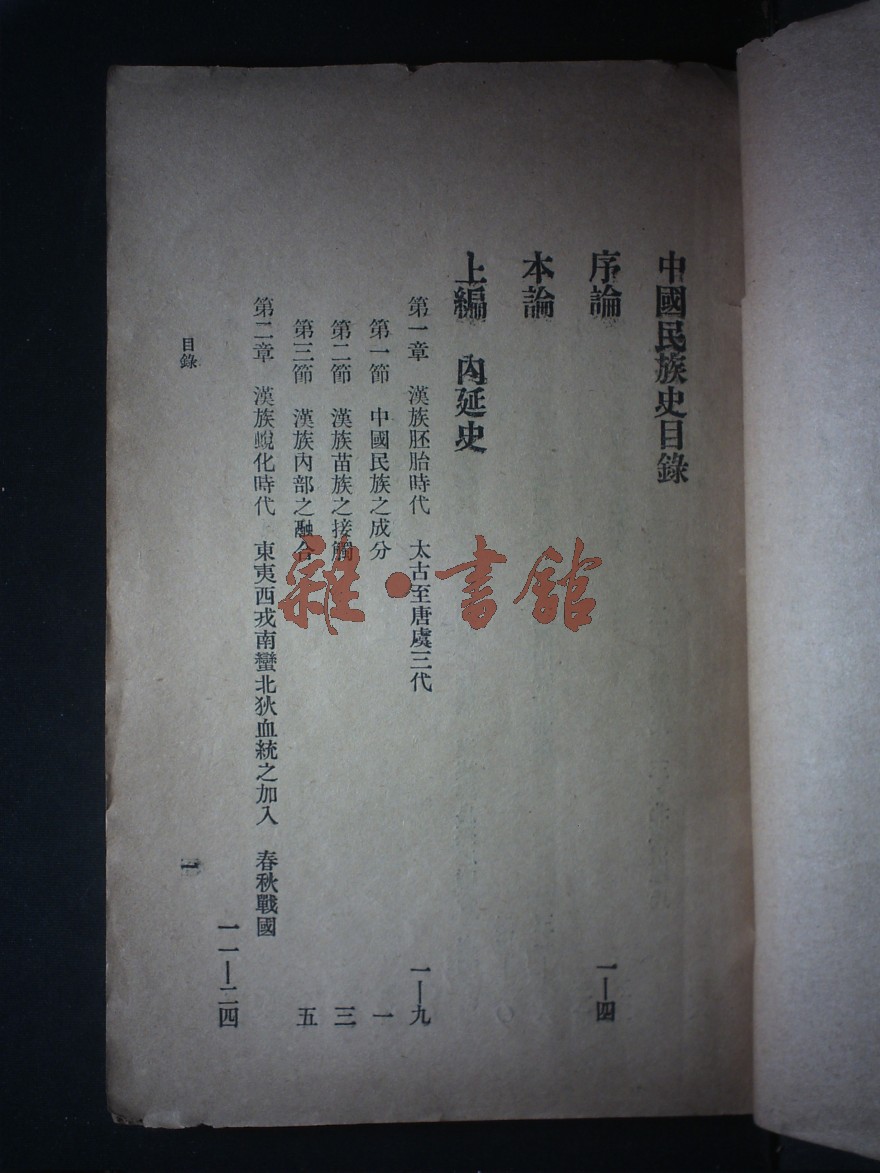 中國民族史目錄
序論 一—四
本論
上編 內延史
第一章 漢族胚胎時代 太古至唐虞三代 一—九
第一節 中國民族之成分 一
第二節 漢族苗族之接觸 三
第三節 漢族內部之融合 五
第二章 漢族蛻化時代 東夷西戎南蠻北狄血統之加入 春秋戰國
一一—二四
目錄 一
雜·書館